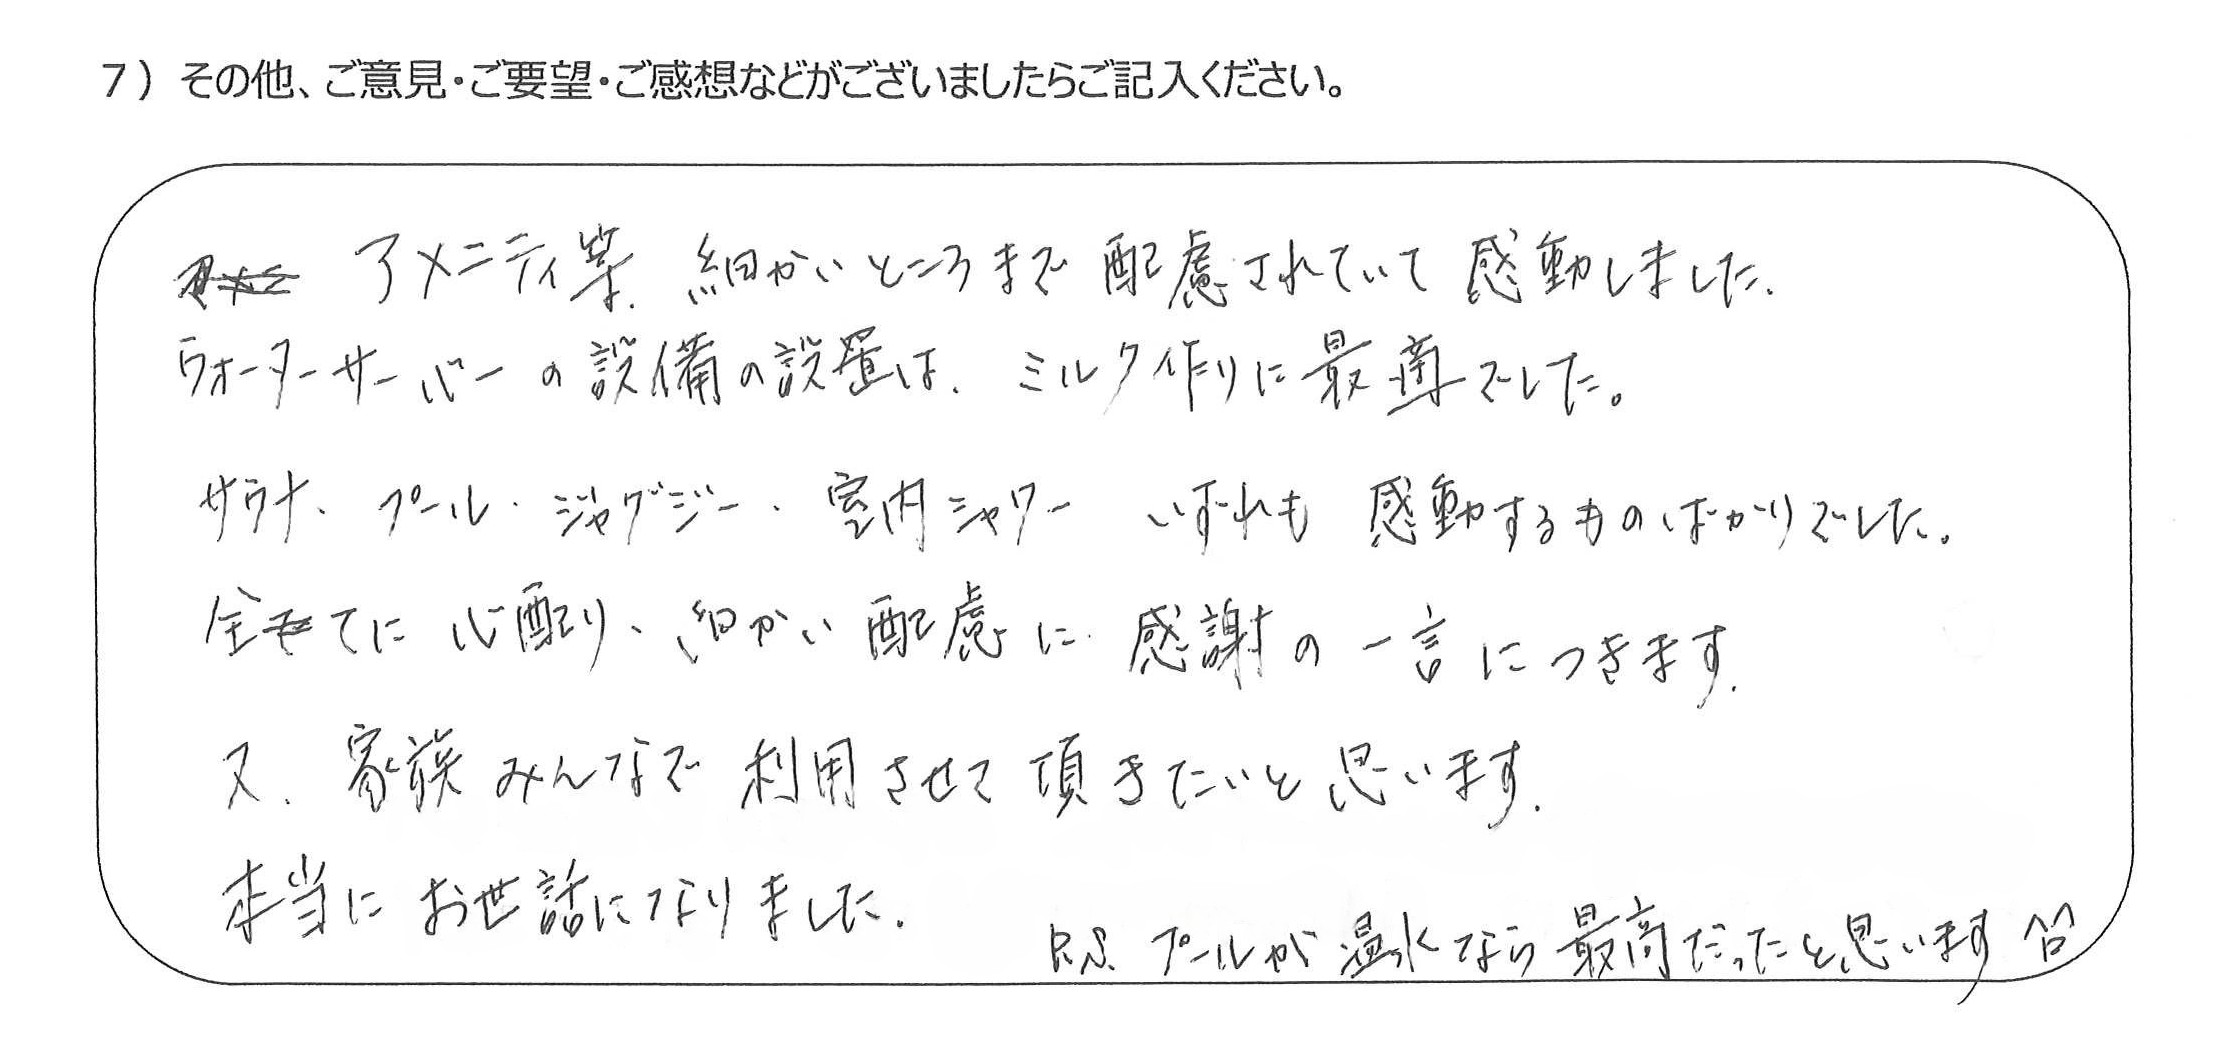 7）その他、ご意見・ご要望・ご感想などがございましたらご記入ください。
アメニティ等、細かいところまで配慮されていて感動しました。
ウォーターサーバーの設備の設置は、ミルク作りに最適でした。
サウナ、プール・ジャグジー・室内シャワー いずれも感動するものばかりでした。
全てに心配り、細かい配慮に感謝の一言につきます。
又、家族みんなで利用させて頂きたいと思います。
本当にお世話になりました。
P.S. プールが温水なら最高だったと思います^^